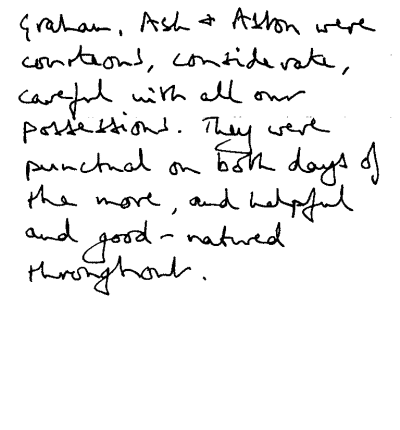 Graham, Ash & Aston were
courteous, considerate,
careful with all our
possessions. They were
punctual on both days of
the move, and helpful
and good-natured
throughout.